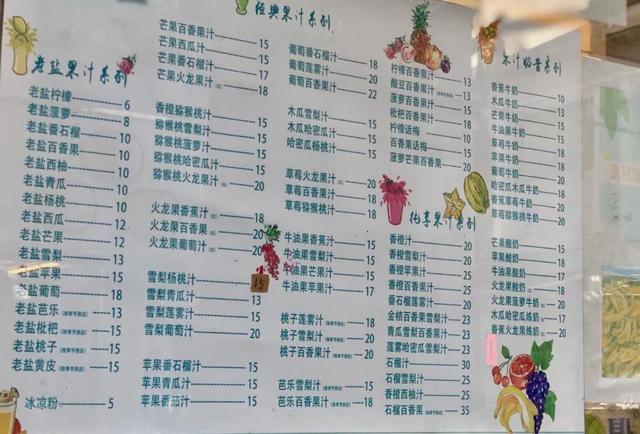 经典果汁系列
老盐果汁系列
老盐柠檬 6
老盐菠萝 8
老盐番石榴 10
老盐百香果 10
老盐西柚 10
老盐青瓜 10
老盐杨桃 10
老盐西瓜 12
老盐芒果 12
老盐雪梨 13
老盐苹果 15
老盐葡萄 18
老盐芭乐 13
老盐枇杷 15
老盐桃子 15
老盐黄皮 15
冰凉粉 5
芒果百香果汁 15
芒果西瓜汁 15
芒果番石榴汁 17
芒果火龙果汁 18
香橙猕猴桃汁 15
猕猴桃雪梨汁 15
猕猴桃菠萝汁 15
猕猴桃哈密瓜汁 15
猕猴桃火龙果汁 20
火龙果香蕉汁 18
火龙果百香果 20
火龙果葡萄汁 20
雪梨杨桃汁 15
雪梨青瓜汁 13
雪梨莲雾汁 20
雪梨葡萄汁 20
苹果番石榴汁 15
苹果青瓜汁 15
苹果番茄汁 15
葡萄番石榴汁 18
葡萄莲雾汁 20
葡萄百香果汁 22
木瓜雪梨汁 15
木瓜哈密瓜汁 15
哈密瓜杨桃汁 15
草莓火龙果汁 20
草莓百香果汁 18
草莓猕猴桃汁 18
牛油果香蕉汁 15
牛油果雪梨汁 15
牛油果芒果汁 15
牛油果苹果汁 17
桃子莲雾汁 18
桃子雪梨汁 20
桃子百香果汁 20
芭乐雪梨汁 15
芭乐百香果汁 18
柠檬百香果汁 13
酸豆百香果汁 13
菠萝百香果汁 15
枇杷百香果汁 18
柠檬话梅 10
百香果话梅 15
菠萝芒果百香果 20
纯享果汁系列
香橙汁 20
香橙雪梨汁 20
香橙苹果汁 25
香橙百香果汁 25
番石榴莲雾汁 20
金桔百香果雪梨汁 23
青瓜雪梨百香果汁 23
莲雾哈密瓜雪梨汁 23
石榴汁 30
石榴雪梨汁 25
香橙西柚汁 25
石榴百香果 35
果汁奶昔系列
香蕉牛奶 10
木瓜牛奶 13
芒果牛奶 15
牛油果牛奶 15
草莓牛奶 15
苹果牛奶 15
火龙果牛奶 18
哈密瓜木瓜牛奶 20
香蕉草莓牛奶 20
草莓猕猴桃牛奶 20
芒果酸奶 15
苹果酸奶 17
牛油果酸奶 17
火龙果酸奶 18
火龙果菠萝牛奶 20
木瓜哈密瓜炼奶 17
香蕉火龙果炼奶 20